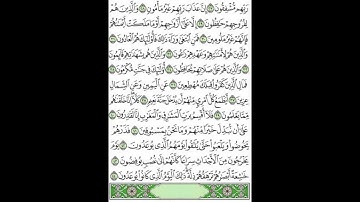 رَبِّهِم مُّشْفِقُونَ ۝٢٧ إِنَّ عَذَابَ رَبِّهِمْ غَيْرُ مَأْمُونٍ ۝٢٨ وَالَّذِينَ هُمْ
لِفُرُوجِهِمْ حَٰفِظُونَ ۝٢٩ إِلَّا عَلَىٰ أَزْوَٰجِهِمْ أَوْ مَا مَلَكَتْ أَيْمَٰنُهُمْ
فَإِنَّهُمْ غَيْرُ مَلُومِينَ ۝٣٠ فَمَنِ ابْتَغَىٰ وَرَآءَ ذَٰلِكَ فَأُوْلَٰٓئِكَ هُمُ الْعَادُونَ
۝٣١ وَالَّذِينَ هُمْ لِأَمَٰنَٰتِهِمْ وَعَهْدِهِمْ رَٰعُونَ ۝٣٢ وَالَّذِينَ هُم بِشَهَٰدَٰتِهِمْ قَآئِمُونَ
۝٣٣ وَالَّذِينَ هُمْ عَلَىٰ صَلَاتِهِمْ يُحَافِظُونَ ۝٣٤ أُوْلَٰٓئِكَ فِي جَنَّٰتٍ مُّكْرَمُونَ
۝٣٥ فَمَالِ الَّذِينَ كَفَرُوا قِبَلَكَ مُهْطِعِينَ ۝٣٦ عَنِ الْيَمِينِ وَعَنِ الشِّمَالِ
عِزِينَ ۝٣٧ أَيَطْمَعُ كُلُّ امْرِئٍ مِّنْهُمْ أَن يُدْخَلَ جَنَّةَ نَعِيمٍ ۝٣٨ كَلَّآ إِنَّا خَلَقْنَٰهُم
مِّمَّا يَعْلَمُونَ ۝٣٩ فَلَآ أُقْسِمُ بِرَبِّ الْمَشَٰرِقِ وَالْمَغَٰرِبِ إِنَّا لَقَٰدِرُونَ
۝٤٠ عَلَىٰٓ أَن نُّبَدِّلَ خَيْرًا مِّنْهُمْ وَمَا نَحْنُ بِمَسْبُوقِينَ ۝٤١ فَذَرْهُمْ
يَخُوضُوا وَيَلْعَبُوا حَتَّىٰ يُلَٰقُوا يَوْمَهُمُ الَّذِي يُوعَدُونَ ۝٤٢ يَوْمَ
يَخْرُجُونَ مِنَ الْأَجْدَاثِ سِرَاعًا كَأَنَّهُمْ إِلَىٰ نُصُبٍ يُوفِضُونَ ۝٤٣
خَٰشِعَةً أَبْصَٰرُهُمْ تَرْهَقُهُمْ ذِلَّةٌ ذَٰلِكَ الْيَوْمُ الَّذِي كَانُوا يُوعَدُونَ ۝٤٤